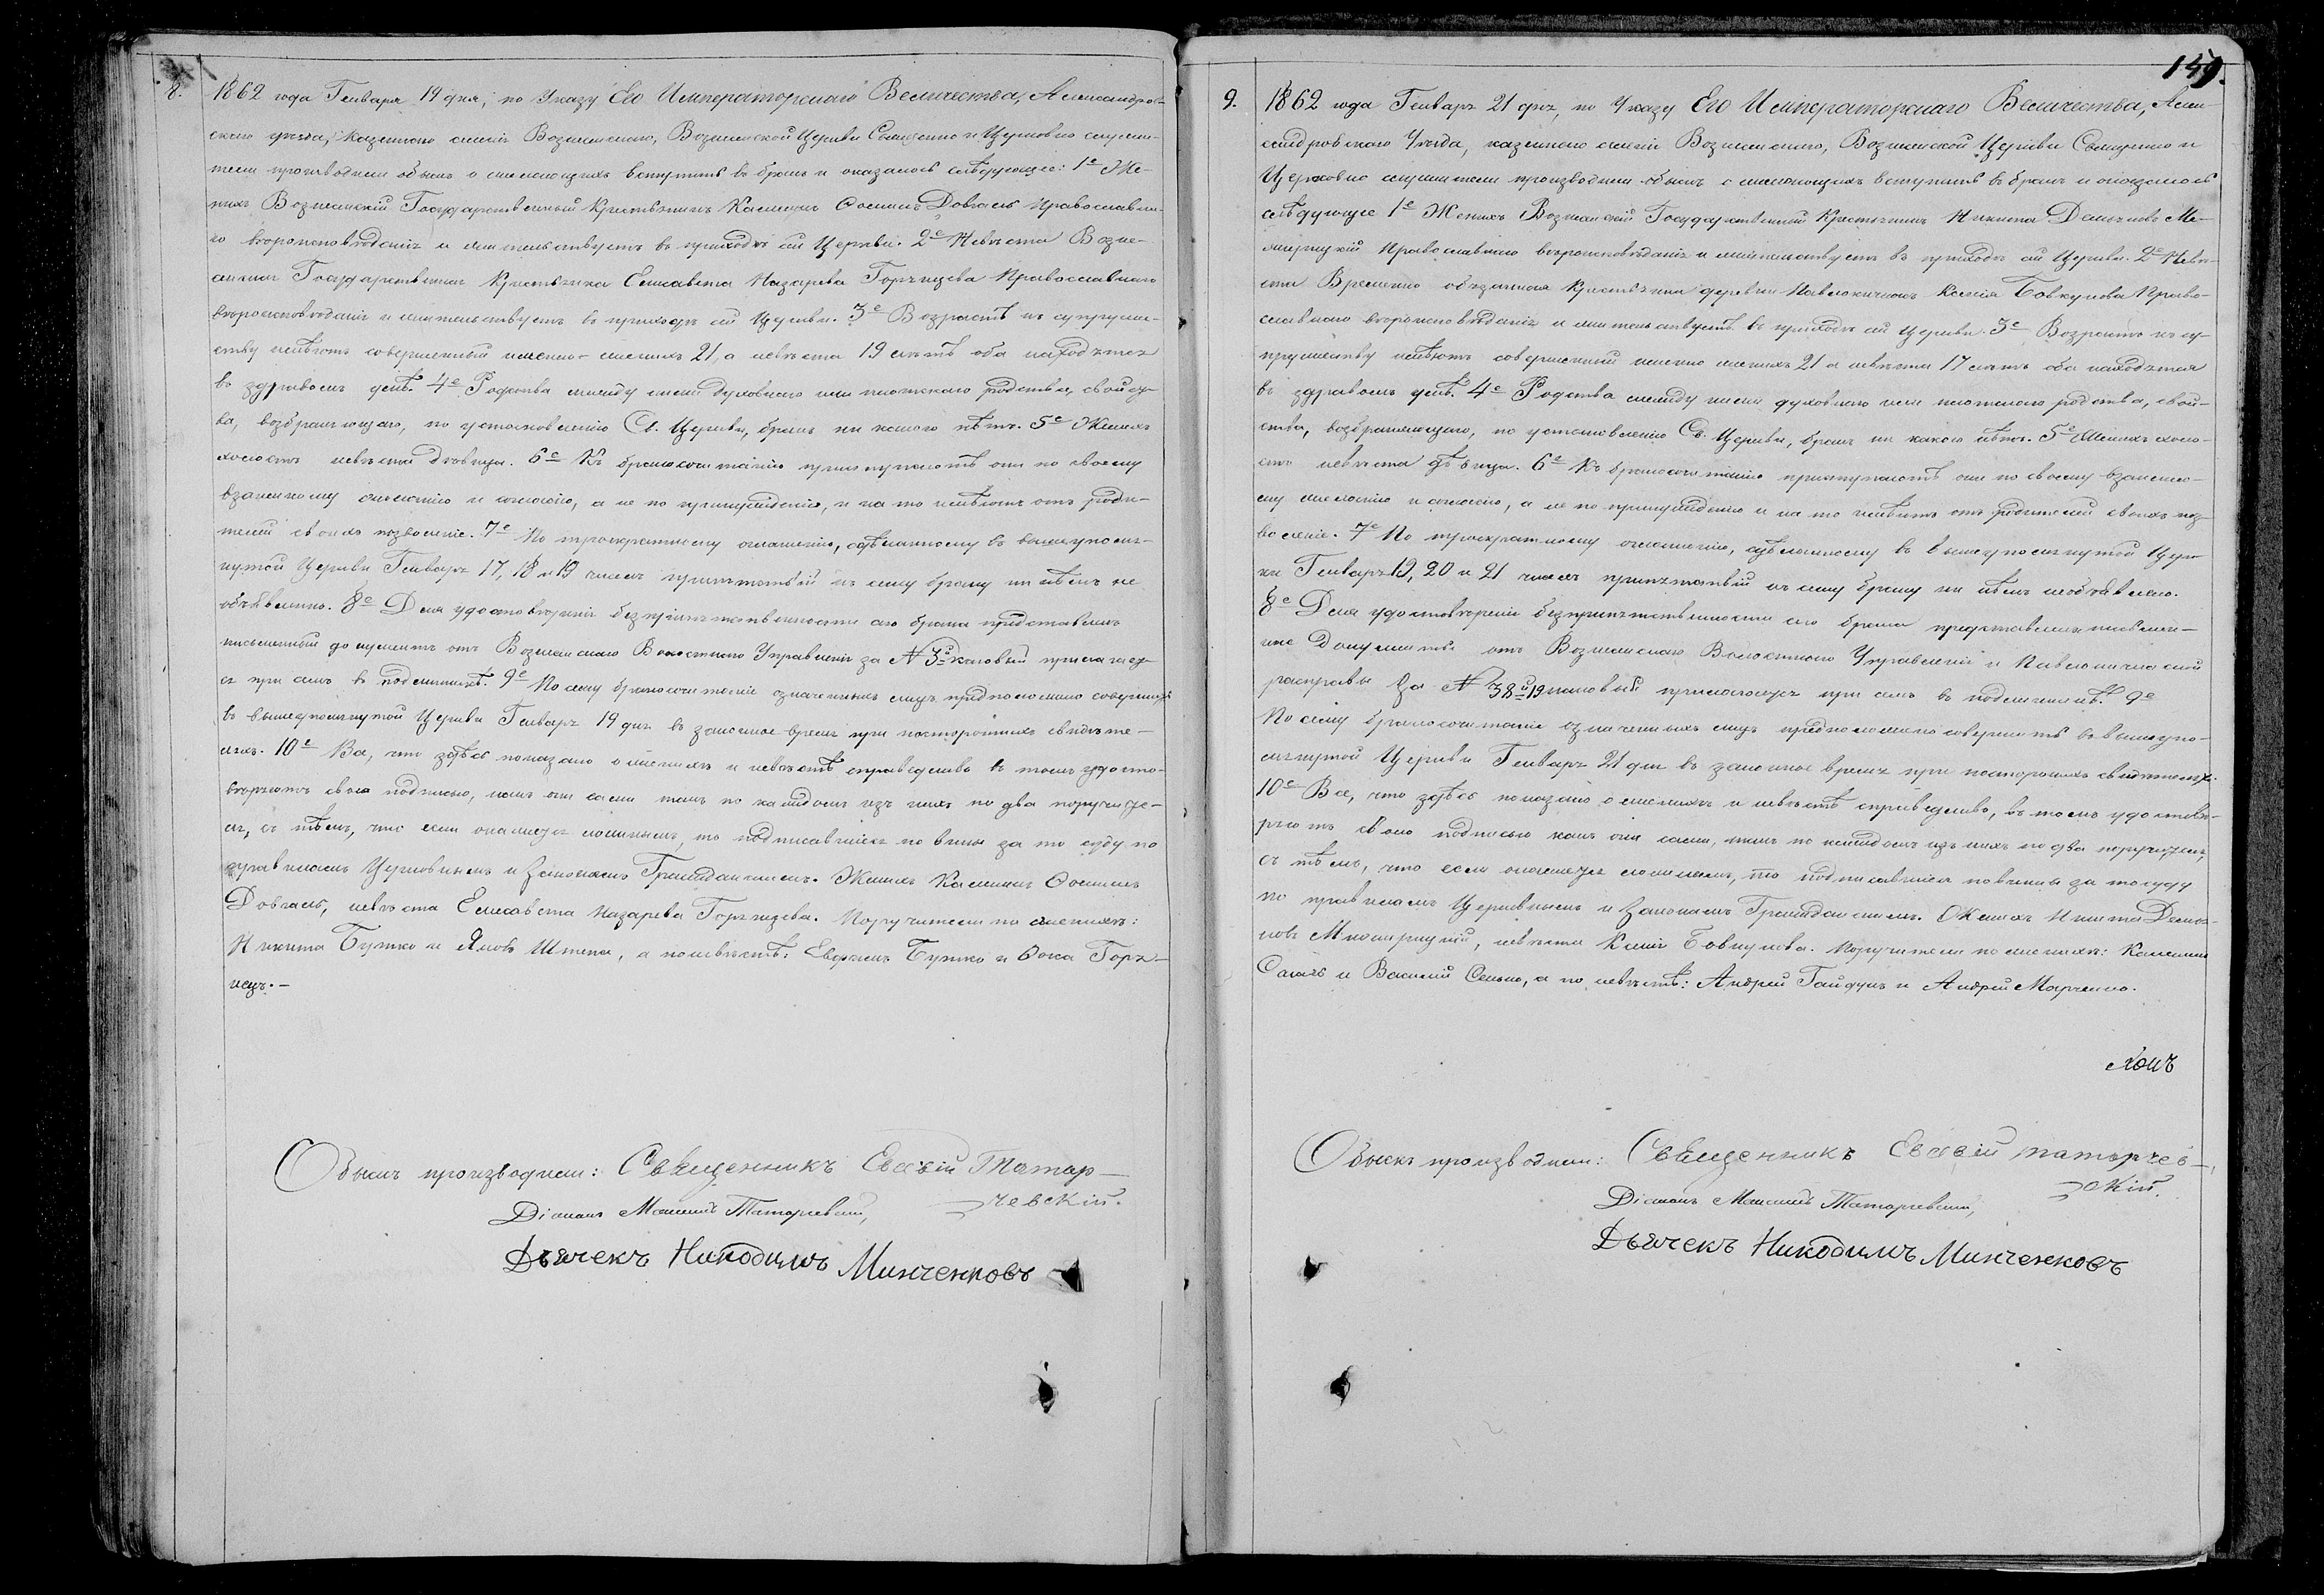 8. 1862 года Генваря 19 дня, по Указу Его Императорскаго Величества, Александров-
скаго уезда, Казеннаго селенія Вознесенскаго, Вознесенской Церкви Священно и Церковно служи-
тели производили обыскъ о желающихъ вступить въ бракъ и оказалось слѣдующее: 1е Же-
нихъ Вознесенскій Государственный Крестьянинъ Калиникъ Осиповъ Довгаль Православна-
го вѣроисповѣданія и жительствуетъ въ приходѣ сей Церкви. 2е Невѣста Возне-
сенская Государственная Крестьянка Елисавета Назарева Горяңцева Православнаго
вѣроисповѣданія и жительствуетъ въ приходѣ сей Церкви. 3е Возрастъ къ супруже-
ству имѣютъ совершенный именно женихъ 21, а невѣста 19 лѣтъ оба находятся
въ здравомъ умѣ. 4е Родства между ними духовнаго или плотскаго родства, свойст-
ва, возбраняющаго, по установленію Св. Церкви, бракъ ни какого нѣтъ. 5е Женихъ
холостъ невѣста дѣвица. 6е Къ бракосочитанію приступаютъ они по своему
взаимному желанію и согласію, а не по принужденію, и на то имѣютъ отъ роди-
телей своихъ позволеніе. 7е По троекратному оглашенію, сдѣланному въ вышеупомя-
нутой Церкви Генваря 17, 18 и 19 чиселъ препятствій къ сему браку ни кѣмъ не
объявлено. 8е Для удостовѣренія безпрепятственности сего брака представленъ
письменный документъ отъ Вознесенскаго Волостнаго Управленія за № 3й каковый прилагает-
ся при семъ въ подлинникѣ. 9е По сему бракосочитаніе означенныхъ лицъ предположено совершить
въ вышеупомянутой Церкви Генваря 19 дня въ законное время при постороннихъ свидѣте-
ляхъ. 10е Все, что здѣсь показано о женихѣ и невѣстѣ справедливо въ томъ удосто-
вѣряютъ своею подписью, какъ они сами такъ по каждомъ изъ нихъ по два поручите-
ля, съ тѣмъ, что если окажется ложнымъ, то подписавшіеся повинны за то суду по
правиламъ Церковнымъ и Законамъ Гражданскимъ. Женихъ Калиникъ Осиповъ
Довгаль, невѣста Елисавета Назарева Горяңцева. Поручители по женихѣ:
Никита Бутко и Яковъ Штепа, а по невѣстѣ: Евфимъ Бутко и Фока Горя-
нецъ.-
Обыскъ производили: Священникъ Евсевій Татар-
чевскій.
Діаконъ Татарчевскій,
Дьячекъ Никодимъ Минченковъ
149.
9. 1862 года Генваря 21 дня, по Указу Его Императорскаго Величества, Алек-
сандровскаго Уѣзда, казеннаго селенія Вознесенскаго, Вознесенской Церкви Священно и
Церковно служители производили обыскъ о желающихъ вступить въ бракъ и оказалось
слѣдующее 1е Женихъ Вознесенскій Государственный Крестьянинъ Никита Демьяновъ
Православнаго вѣроисповѣданія и жительствуетъ въ приходѣ сей Церкви. 2е Невѣ-
ста Временно обязанная Крестьянка деревни Ксенія Бовкунова Право-
славнаго вѣроисповѣданія и жительствуетъ въ приходѣ сей Церкви. 3е Возрастъ къ су-
пружеству имѣютъ совершенный именно женихъ 21 а невѣста 17 лѣтъ оба находятся
въ здравомъ умѣ. 4е Родства между ними духовнаго или плотскаго родства, свой-
ства, возбраняющаго, по установленію Св. Церкви, бракъ ни какого нѣтъ. 5е Женихъ холо-
стъ невѣста дѣвица. 6е Къ бракосочитанію приступаютъ они по своему взаимно-
му желанію и согласію, а не по принужденію и на то имѣютъ отъ родителей своихъ поз-
воленіе. 7е По троекратному оглашенію, сдѣланному въ вышеупомянутой Церк-
ви Генваря 19, 20 и 21 чиселъ препятствій къ сему браку ни кѣмъ необъявлено.
8е Для удостовѣренія безпрепятственности сего брака представлены письмен-
ные Документы отъ Вознесенскаго Волостнаго Управленія и
расправы За № 38й и 19 каковый прилагаются при семъ въ подлинникѣ. 9е
По сему бракосочитаніе означенныхъ лицъ предположено совершить въ вышеупо-
мянутой Церкви Генваря 21 дня въ законное время при постороннихъ свидѣтеляхъ.
10е Все, что здѣсь показано о женихѣ и невѣстѣ справедливо, въ томъ удостовѣ-
ряютъ своею подписью какъ они сами, такъ по каждомъ изъ нихъ по два поручителя,
съ тѣмъ, что если окажется ложнымъ, то подписавшіеся повинны за то суду
по правиламъ Церковнымъ и Законамъ Гражданскимъ. Женихъ Никита Демья-
новъ невѣста Ксенія Бовкунова. Поручители по женихѣ: Калиникъ
и Василій Сенько, а по невѣстѣ: Андрей Гайдукъ и Андрей Марченко.
Обыскъ производили: Священникъ Евсевій Татарчев-
скій.
Діаконъ Татарчевскій,
Дьячекъ Никодимъ Минченковъ